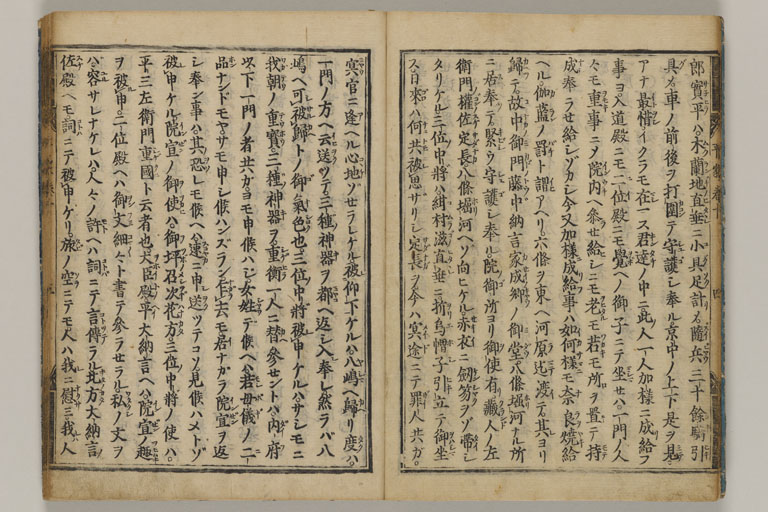 郎實平ハ木蘭地直垂ニ小具足計ニテ隨兵三十餘騎引
具シ車ノ前後ヲ打圍テ守護シ奉ル京中ノ上下是ヲ見テ
アナ最惜イクラモ在マス君達ノ中ニ此人一人加樣ニ成給フ
事ヨ入道殿ニモ二位殿ニモ覺ヘノ御子ニテ坐セハ一門ノ人
々モ重事ニシテ院内ヘ參セ給シニモ老モ若モ所ヲ置テ持
成奉ラセ給シゾカシ今又加樣成給事ハ如何樣モ奈良燒給
ヘル伽藍ノ罸ト謂アヘリ六條ヲ東ヘ河原迄渡テ其ヨリ
歸テ故中御門藤中納言家成卿ノ御堂八條堀河ナル所
ニ居奉テ緊ウ守護シ奉ル院御所ヨリ御使有藏人ノ左
衛門權佐定長八條堀河ヘソ向ヒケル赤衣ニ劔笏ヲソ帶シ
タリケル三位中將ハ紺村滋直垂ニ折烏帽子引立テ御坐
ス日來ハ何共被思サリシ定長ヲ今ハ冥途ニテ罪人共カ
冥官ニ逢ヘル心地ゾセラレケル被仰下ケルハ八嶋ヘ歸リ度ハ
一門ノ方ヘ云送ツテ三種神器ヲ都ヘ返シ入奉レ然ラバ八
嶋ヘ可被歸トノ御氣色也三位中將被申ケルハサシモニ
我朝ノ重寳三種神器ヲ重衡一人ニ替參セントハ内府
以下一門ノ者共カヨモ申候ハジ女姓テ候ヘハ若母儀ノ二
品ナンドモヤサモ申シ候ハンズラン乍去モ居ナカラ院宣ヲ返
シ奉ン事ハ其恐レモ候ヘハ速ニ申送ツテコソ見候ハメトゾ
被申ケル院宣ノ御使ハ御坪召次花方三位中將ノ使ハ
平三左衛門重國ト云者也大臣殿平大納言ヘハ院宣ノ趣
ヲ被申二位殿ヘハ御文細々ト書テ參ラセラル私ノ文ヲ
ハ容サレナケレハ人々ノ許ヘハ詞ニテ言傳ラル北方大納言
佐殿ヘモ詞ニテ被申ケリ旅ノ空ニテモ人ハ我ニ慰ミ我人